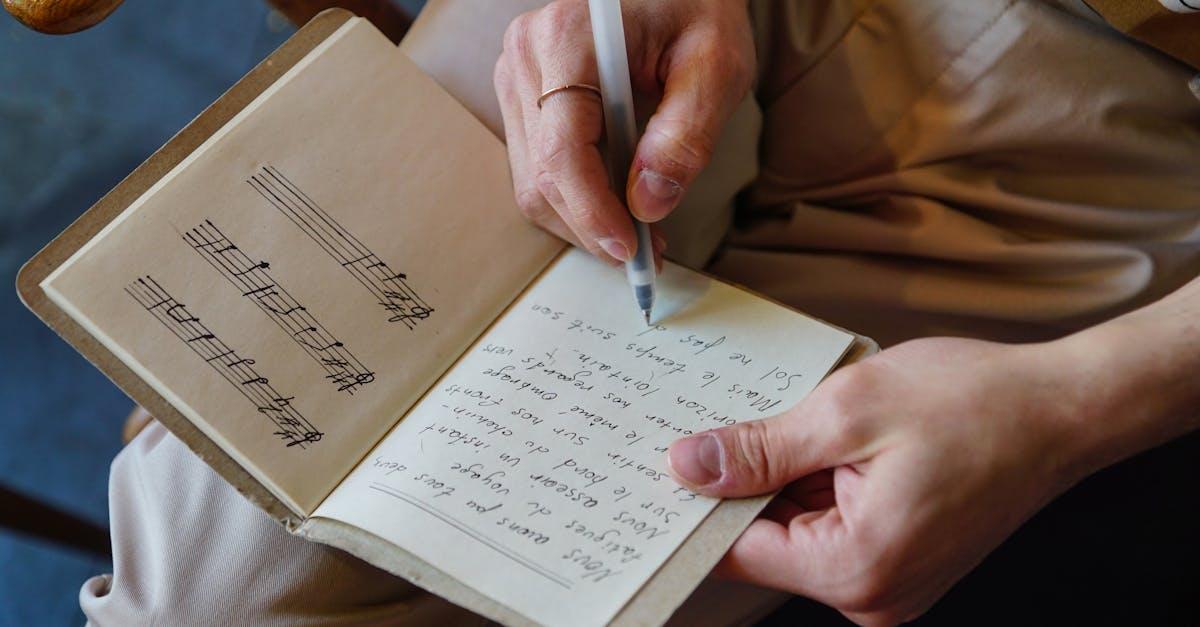 Nous pu tous deux,
fatigués du voyage
Nous asseoir un instant
sur le bord du chemin-
Et sentir sur nos fronts
le même ombrage
nos regards vers
lointain.
Mais le temps suit son
Sol ne pas